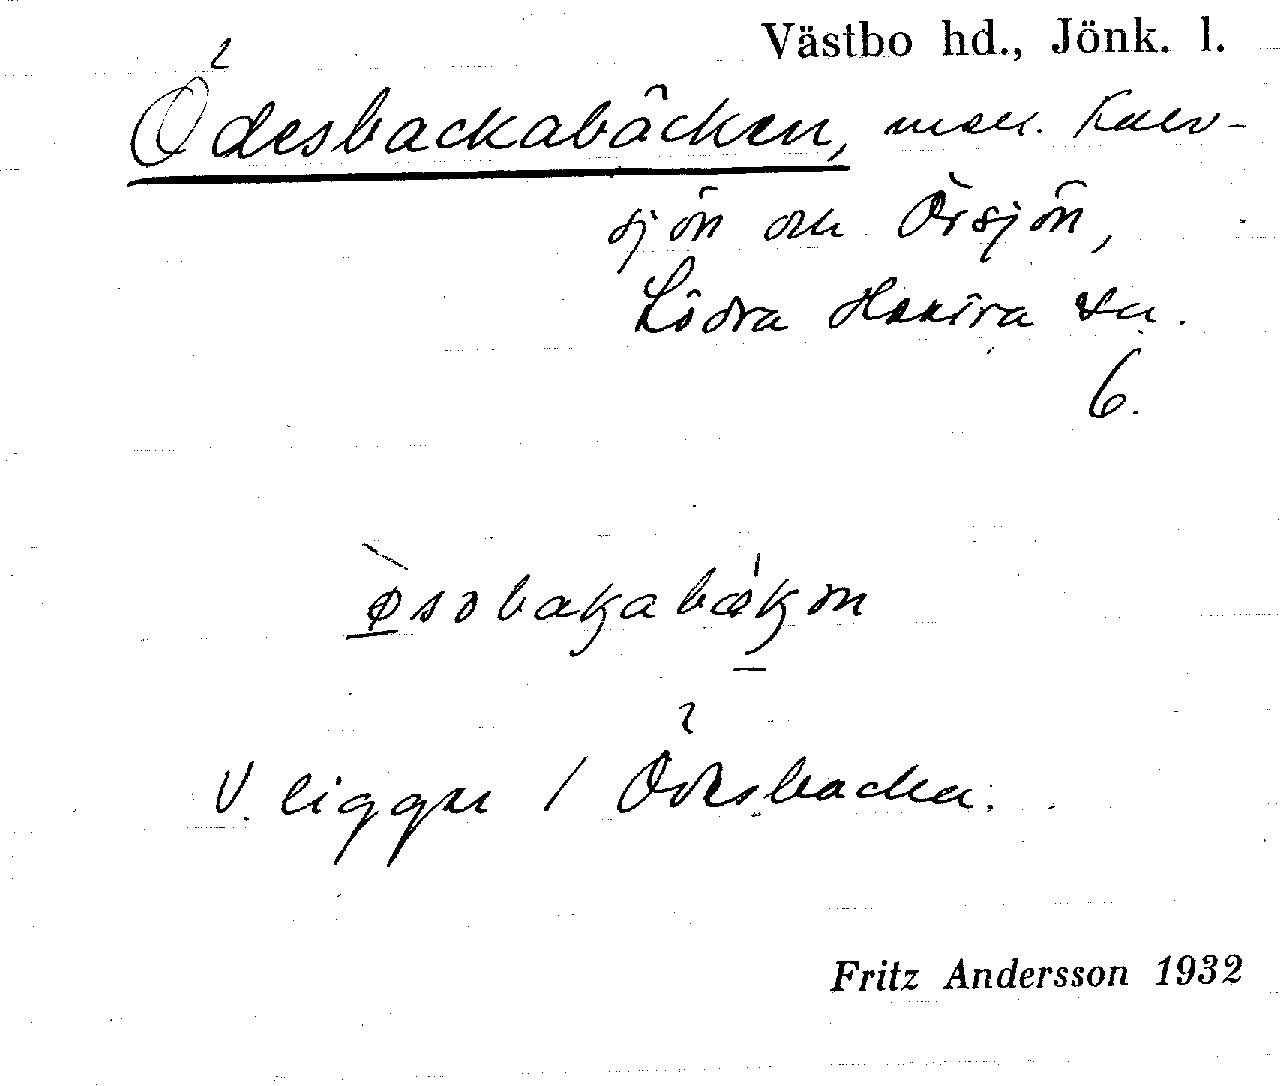 Västbo hd., Jönk. l.
Ödesbackabäcken, mell. Kalv-
sjön och Örsjön,
Södra Hestra sn.
6.
V. ligger i Ödesbacka.
Fritz Andersson 1932